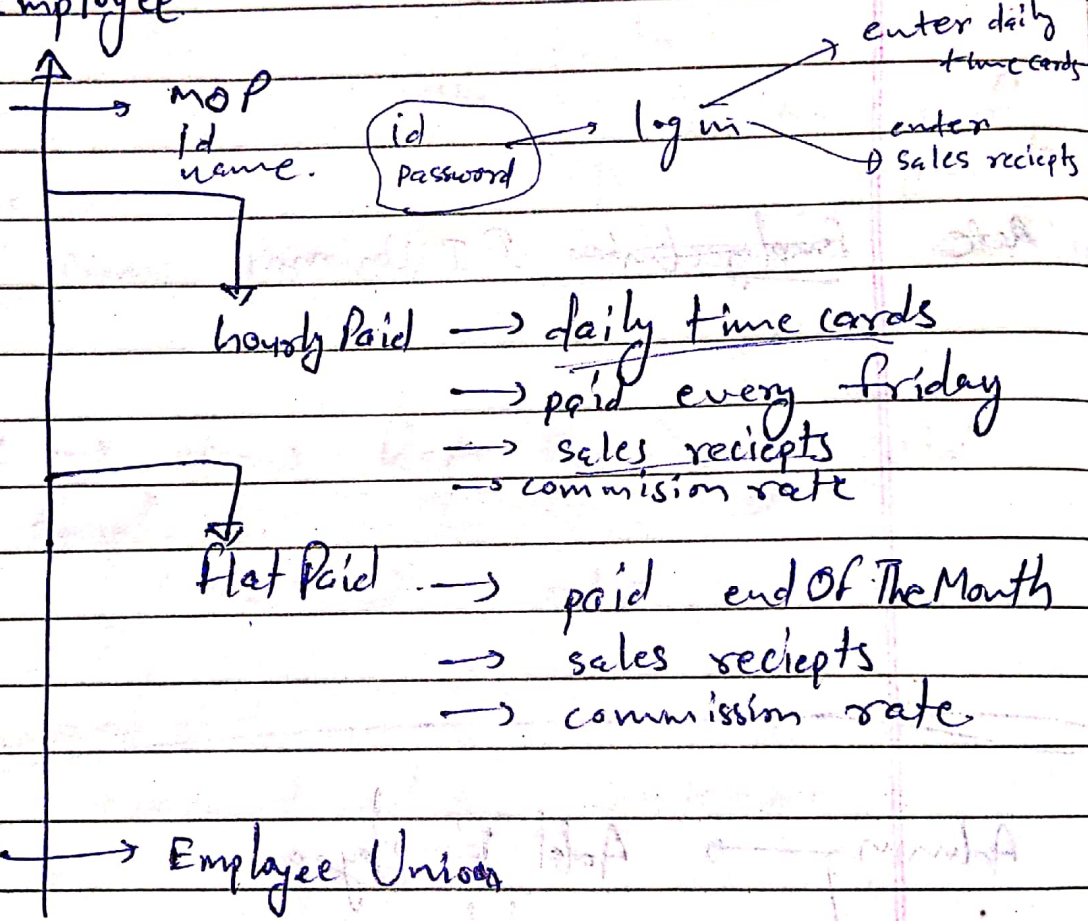 Employee
enter daily
time cards
MOP
id
name.
id
password
log in
enter
sales reciepts
hourly Paid → daily time cards
→ paid every friday
→ sales reciepts
→ commision rate
flat Paid → paid end Of The Month
→ sales reciepts
→ commission rate
→ Employee Union